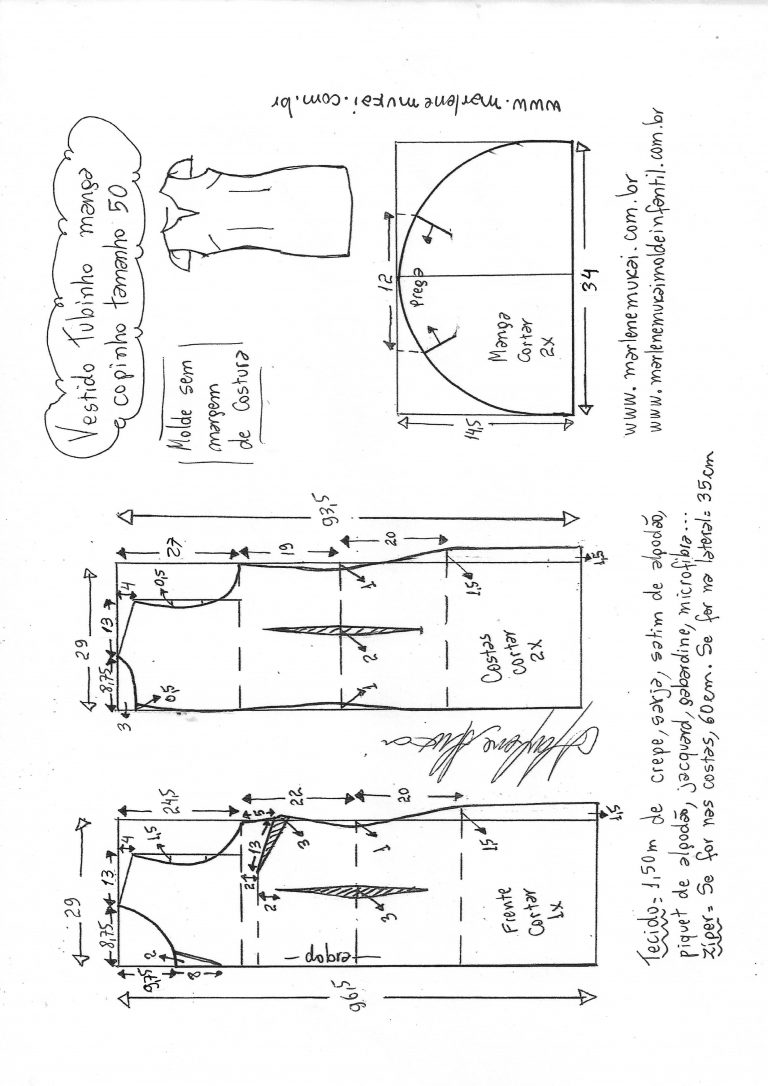 Vestido Tubinho manga
copinho tamanho 50
Molde sem
margem
de Costura
www.marlenemukai.com.br
29
8,75
13
4
3
0,5
0,5
27
19
20
93,5
1
2
1
1,5
1,5
Costas
Cortar
2X
12
Prega
Manga
Cortar
2X
14,5
34
29
8,75
13
4
1,5
9,75
2
8
24,5
5
22
20
13
2
2
3
3
1
1,5
1,5
dobra
96,5
Frente
Cortar
1X
www.marlenemukai.com.br
www.marlenemukaimoldeinfantil.com.br
Tecido= 1,50m de crepe, sarja, satim de algodão,
piquet de algodão, jacquard, gabardine, microfibra...
Zíper= Se for nas costas, 60cm. Se for na lateral= 35cm